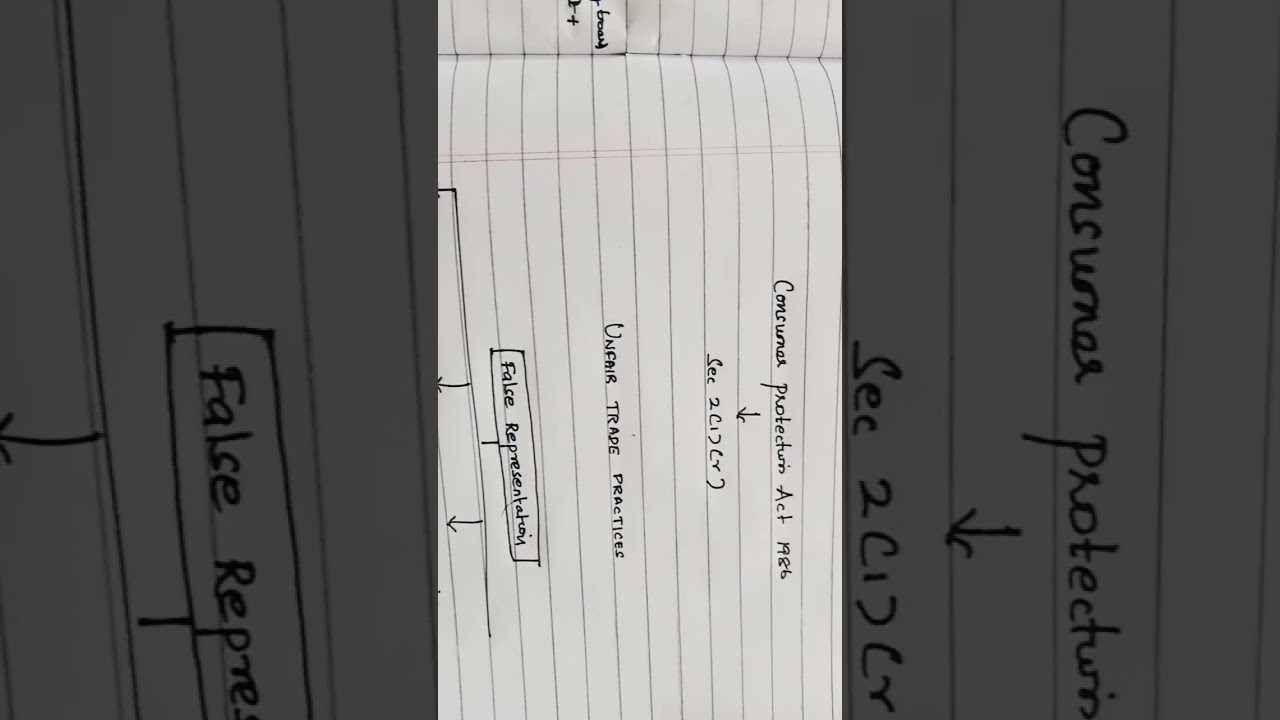 Consumer protection Act 1986
↓
Sec 2(1)(r)
UNFAIR TRADE PRACTICES
False Representation